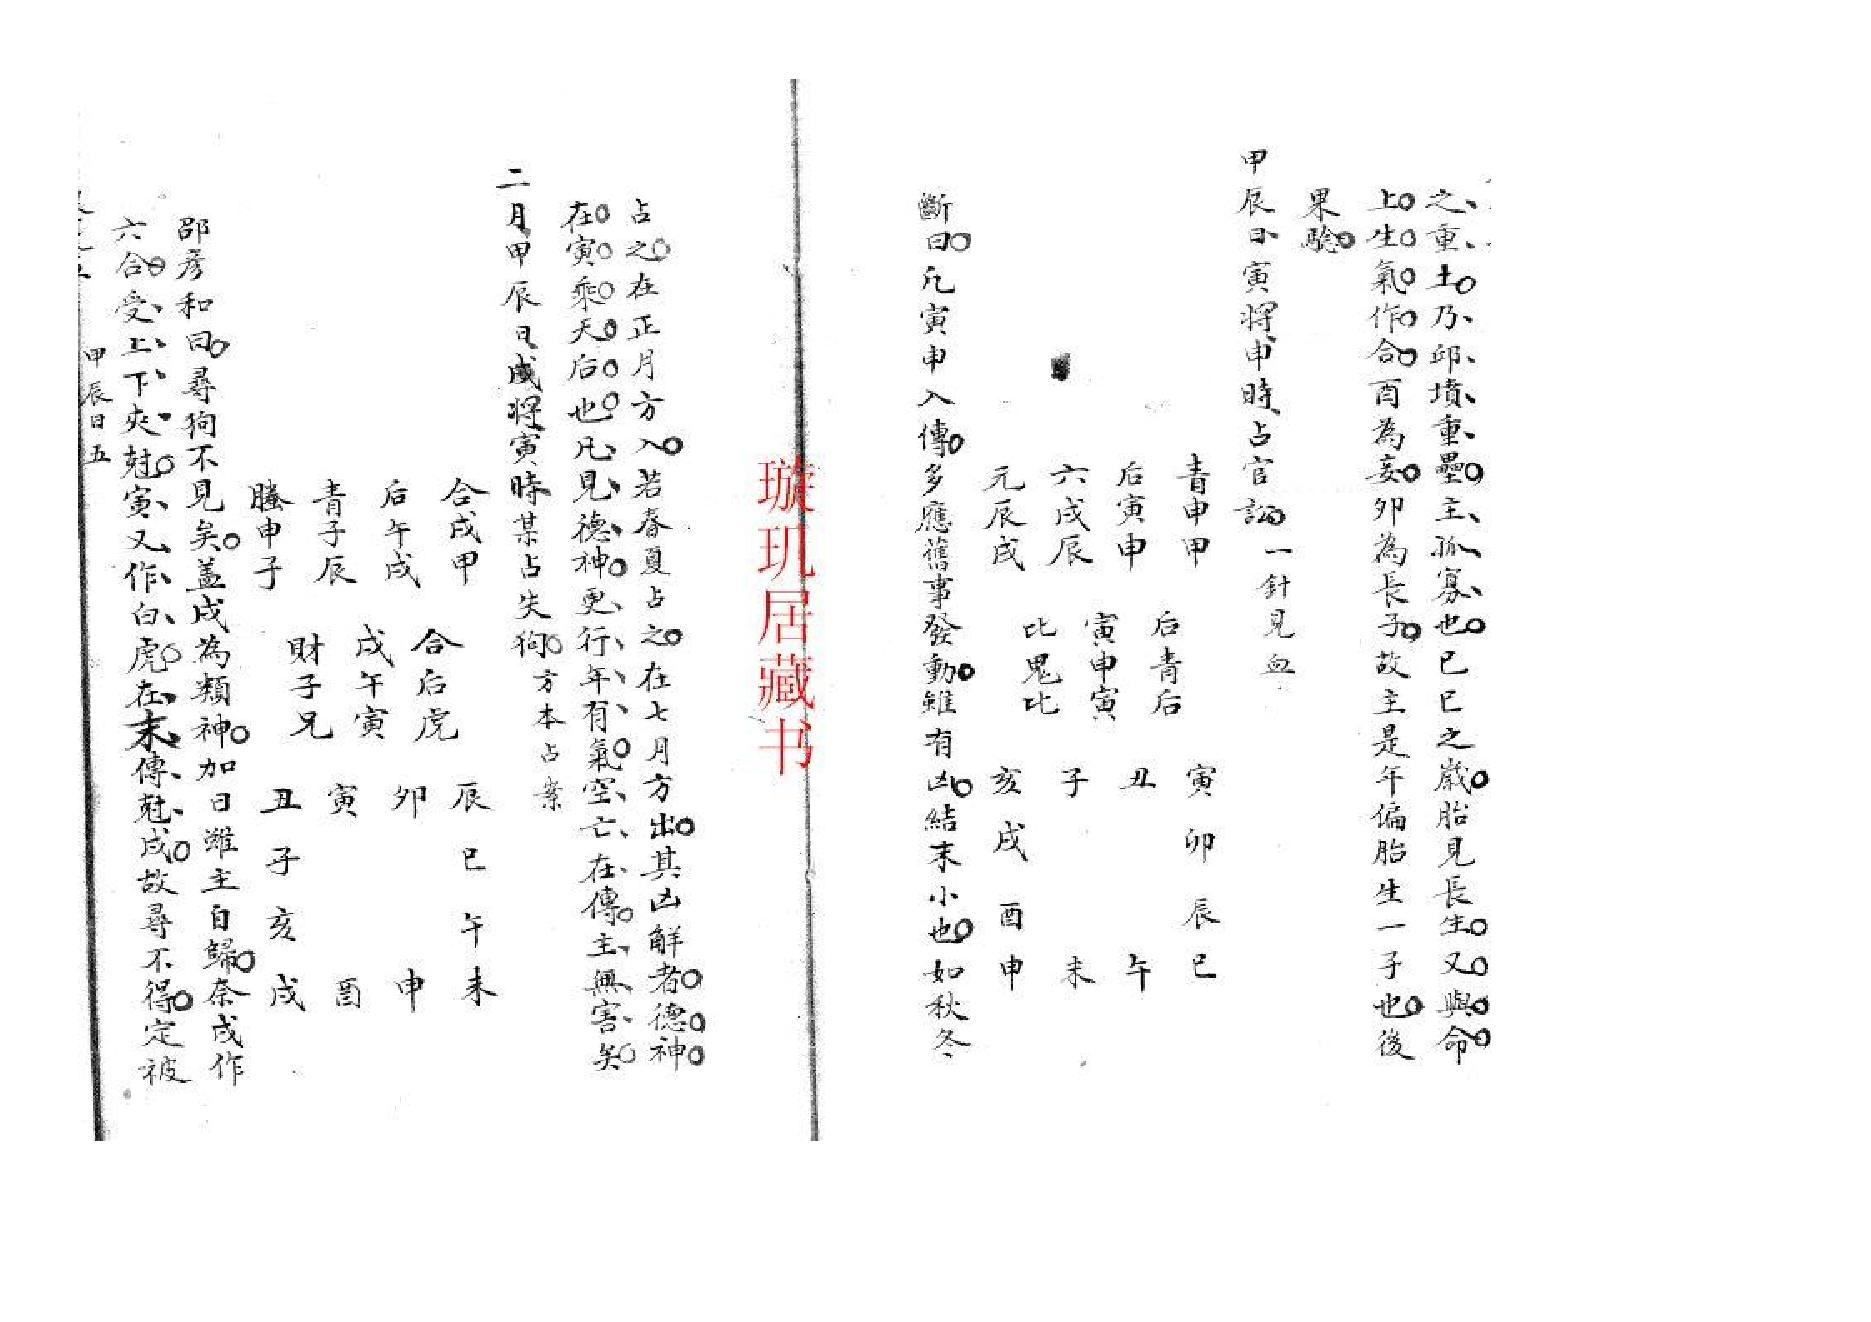 之重土乃邱墳重壘主孤寡也巳巳巳之歲胎見長生又與命
上生氣作合酉為妾卯為長子故主是年偏胎生一子也後
果驗
甲辰日寅将申時占官訟 一針見血
青申甲
后寅申
六戌辰
元辰戌
后青后
寅申寅
比鬼比
寅卯辰巳
丑午
子未
亥戌酉申
斷曰凡寅申入傳多應舊事發動雖有凶結末小也如秋冬
璇玑居藏书
占之在正月方入若春夏占之在七月方出其凶解者德神
在寅乘天后也凡見德神更行年有氣空亡在傳主無害矣
二月甲辰日戌将寅時某占失狗 方本占案
合戌甲
后午戌
青子辰
螣申子
合后虎
戌午寅
財子兄
辰巳午未
卯申
寅酉
丑子亥戌
邵彦和曰尋狗不見矣蓋戌為類神加日雖主自歸奈戌作
六合受上下夾尅寅又作白虎在末傳尅戌故尋不得定被
甲辰日五